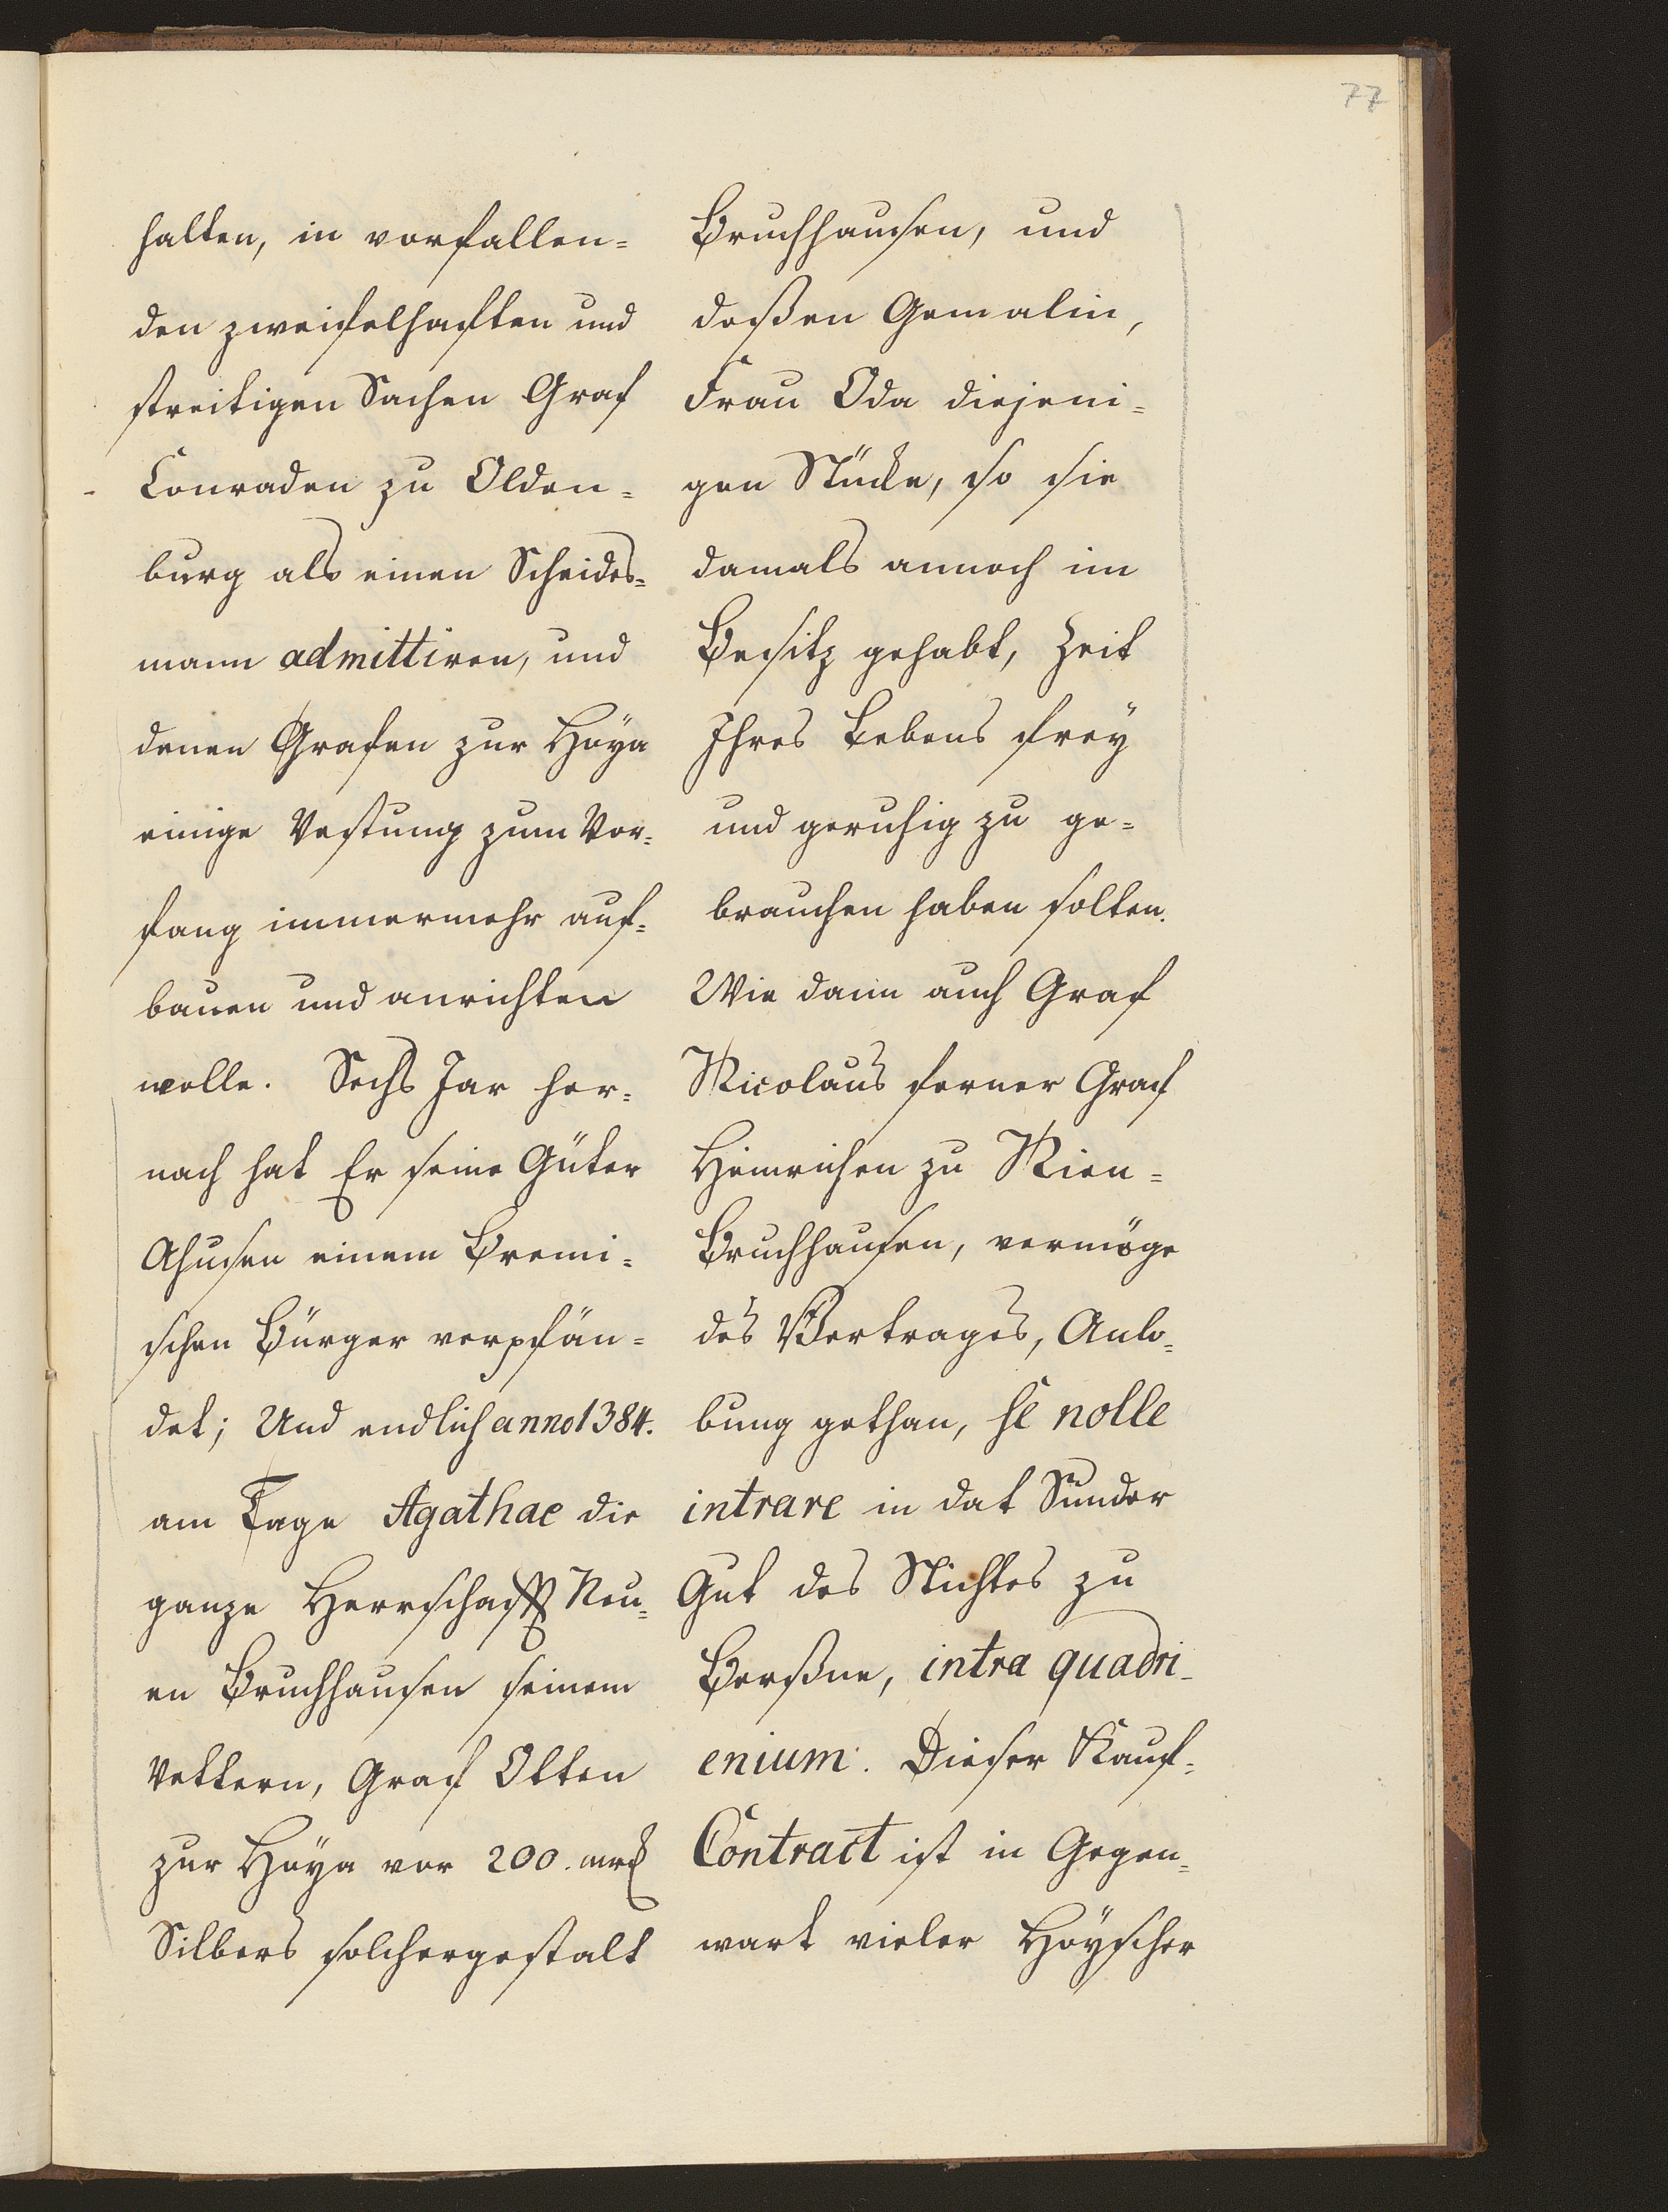 77
halten, in vorfallen=
den zweifelhafften und
streitigen Sachen Graf
Conraden zu Olden=
burg als einen Scheides=
mann admittiren, und
denen Grafen zur Hoÿa
einige Vestung zum Vor=
fang immermehr auf=
bauen und anrichten
wolle. Sechs Jar her=
nach hat Er seine Güter
Ahusen einem Bremi=
schen Bürger verpfän=
det; Und endlich anno 1384.
am Tage Agathae die
ganze Herrschafft Neu=
en Bruchhausen seinem
Vettern, Graf Otten
zur Hoÿa vor 200. mrk
Silbers solchergestalt
Bruchhausen, und
deßen Gemalin,
Frau Oda diejeni=
gen Stücke, so sie
damals annoch im
Besitz gehabt, Zeit
Ihres Lebens freÿ
und geruhig zu ge=
brauchen haben solten.
Wie dann auch Graf
Nicolaus ferner Graf
Heinrichen zu Nien=
Bruchhausen, vermöge
des Vertrages, Anlo=
bung gethan, se nolle
intrare in dat Sunder
Gut des Stichtes zu
Berßne, intra quadri-
enium. Dieser Kauf=
Contract ist in Gegen=
wart vieler Hoÿscher